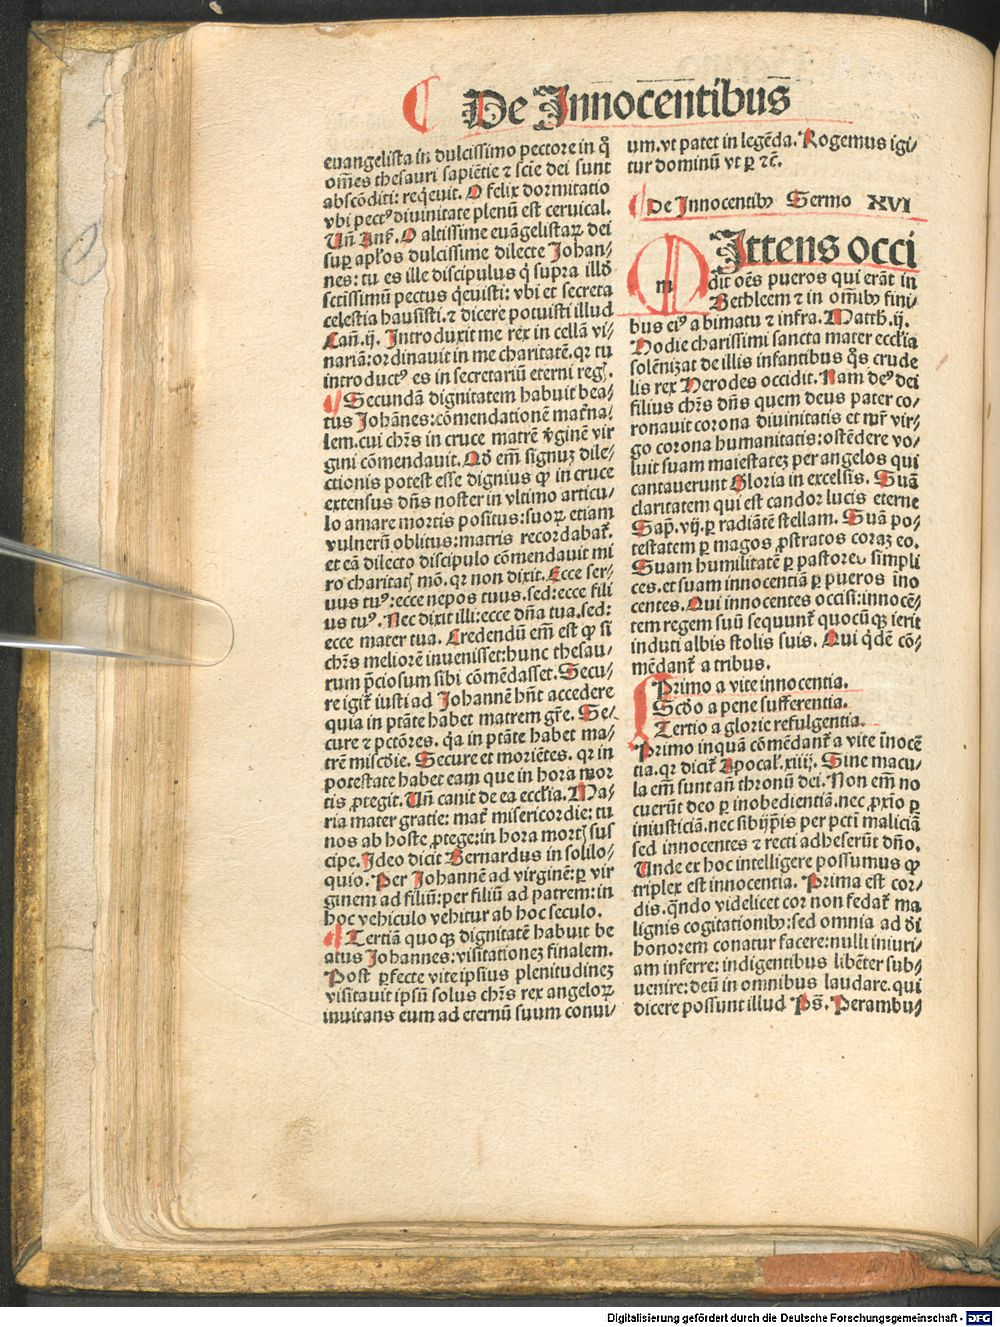 De Innocentibus
euangelista in dulcissimo pectore in q̄
om̄es thesauri sapiētie ⁊ scīe dei sunt
abscōditi: reqͥeuit. O felix dormitatio
vbi pectꝰ diuinitate plenū est ceruical.
Un̄ Ans̄. O altissime euāgelistaꝝ dei
suꝑ apl̄os dulcissime dilecte Johan⸗
nes: tu es ille discipulus q̄ supra illd̄
sctissimū pectus qͥeuisti: vbi et secreta
celestia hausisti. ⁊ dicere potuisti illud
Can̄. ij. Introduxit me rex in cellā vi⸗
nariā: ordinauit in me charitatē. qꝛ tu
introductꝰ es in secretariū eterni regꝭ.
Secundā dignitatem habuit bea⸗
tus Johānes: cōmendationē mat̄na⸗
lem. cui chr̄s in cruce matrē v̄ginē vir
gini cōmendauit. Qd̄ em̄ signuꝫ dile⸗
ctionis potest esse dignius qꝫ in cruce
extensus dn̄s noster in vltimo articu⸗
lo amare mortis positus: suoꝝ etiam
vulnerū oblitus: matris recordabat̄.
et eā dilecto discipulo cōmendauit mi
ro charitatꝭ mō. qꝛ non dixit. Ecce ser⸗
uus tuꝰ: ecce nepos tuus. sed: ecce fili
us tuꝰ. Nec dixit illi: ecce dn̄a tua. sed:
ecce mater tua. Credendū em̄ est ꝙ si
chr̄s meliorē inuenisset: hunc thesau⸗
rum p̄ciosum sibi cōmēdasset. Secu⸗
re igit̄ iusti ad Johannē hn̄t accedere
quia in ptāte habet matrem gr̄e. Se⸗
cure ⁊ pctōres. qͣ in ptāte habet ma⸗
trē miscd̄ie. Secure et moriētes. qꝛ in
potestate habet eam que in hora mor
tis ꝓtegit. Un̄ canit de ea eccl̄ia. Ma⸗
ria mater gratie: mat̄ misericordie: tu
nos ab hoste ꝓtege: in hora mortꝭ sus
cipe. Ideo dicit Bernardus in solilo⸗
quio. Per Johannē ad virginē: ꝑ vir
ginem ad filiū: per filiū ad patrem: in
hoc vehiculo vehitur ab hoc seculo.
Tertiā quoqꝫ dignitatē habuit be
atus Johannes: visitationeꝫ finalem.
Post ꝑfecte vite ipsius plenitudineꝫ
visitauit ipsū solus chr̄s rex angeloꝝ
inuitans eum ad eternū suum conui⸗
um. vt patet in legēda. Rogemus igi⸗
tur dominū vt ꝑ ⁊c̄.
De Innocentibꝫ Sermo XVI
m Ittens occi
dit oēs pueros qui erāt in
Bethleem ⁊ in om̄ibꝫ fini⸗
bus eiꝰ a bimatu ⁊ infra. Matth. ij.
Hodie charissimi sancta mater eccl̄ia
solēnizat de illis infantibus qͦs crude
lis rex Herodes occidit. Nam deꝰ dei
filius chr̄s dn̄s quem deus pater co⸗
ronauit corona diuinitatis et mr̄ vir⸗
go corona humanitatis: ostēdere vo⸗
luit suam maiestateꝫ per angelos qui
cantauerunt Gloria in excelsis. Suā
claritatem qui est candor lucis eterne
Sap̄. vij. ꝑ radiātē stellam. Suā po⸗
testatem ꝑ magos ꝓstratos coraꝫ eo.
Suam humilitatē ꝑ pastores simpli
ces. et suam innocentiā ꝑ pueros īno
centes. Qui innocentes occisi: innocē⸗
tem regem suū sequunt̄ quocūqꝫ ierit
induti albis stolis suis. Qui qͥdē cō⸗
mēdant̄ a tribus.
Primo a vite innocentia.
Scd̄o a pene sufferentia.
Tertio a glorie refulgentia.
Primo inquā cōmēdant̄ a vite īnocē
tia. qꝛ dicit̄ Apocal̄. xiiij. Sine macu⸗
la em̄ sunt an̄ thronū dei. Non em̄ no
cuerūt deo ꝑ inobedientiā. nec ꝓxīo ꝑ
iniusticiā. nec sibijp̄is per pctī maliciā
sed innocentes ⁊ recti adheserūt dn̄o.
Unde ex hoc intelligere possumus ꝙ
triplex est innocentia. Prima est cor⸗
dis. qn̄do videlicet cor non fedat̄ ma
lignis cogitationibꝫ: sed omnia ad d̄i
honorem conatur facere: nulli iniuri⸗
am inferre: indigentibus libēter sub⸗
uenire: deū in omnibus laudare. qui
dicere possunt illud Ps̄. Perambu⸗
Digitalisierung gefördert durch die Deutsche Forschungsgemeinschaft - DFG